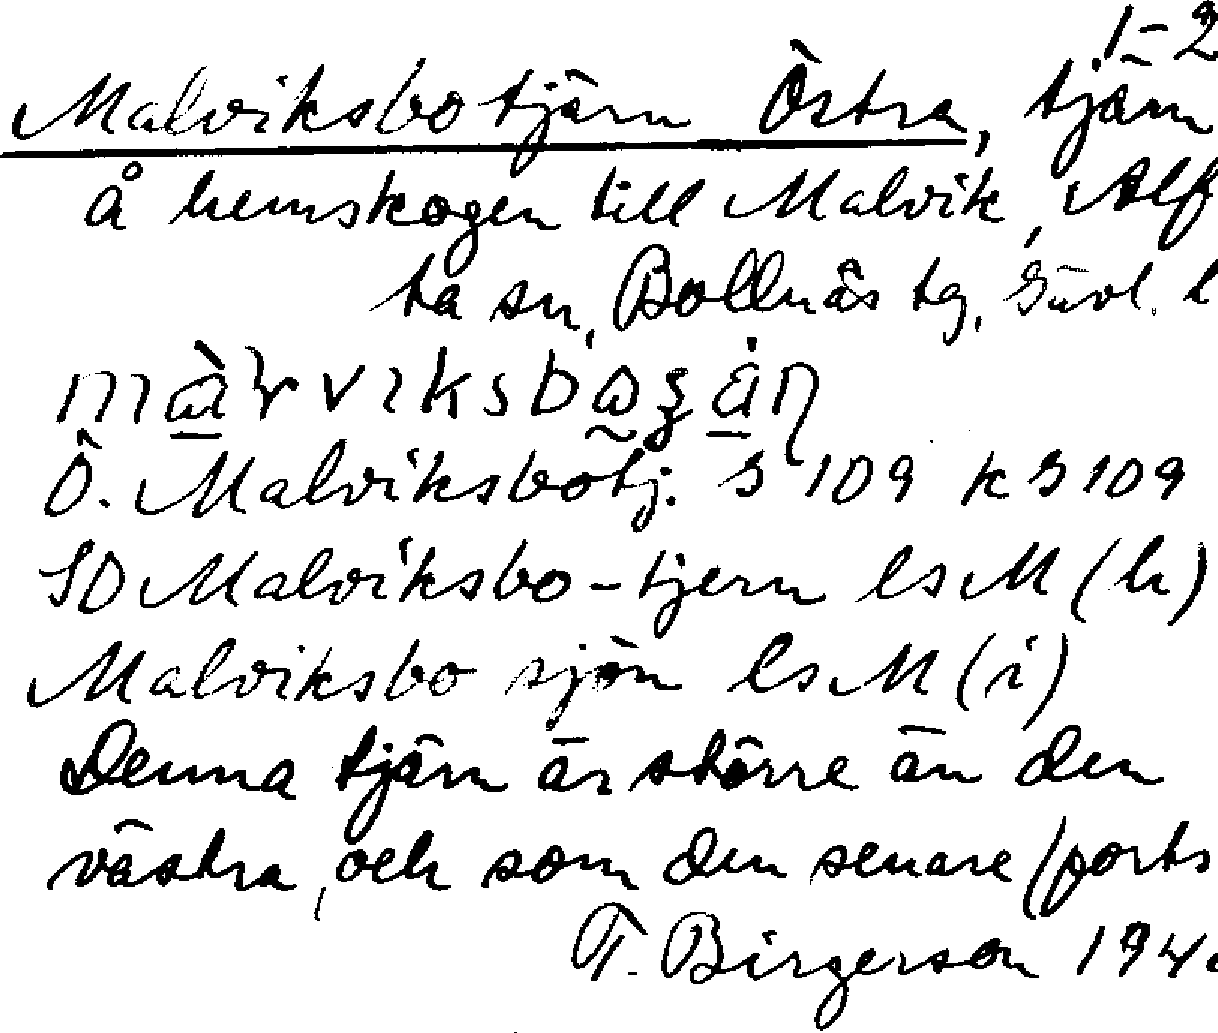 1-2
Malviksbotjärn Östra, tjärn
å hemskogen till Malvik, Alf
ta sn, Bollnäs tg, Gävl. l
Ö. Malviksbotj. G 109 k G 109
SO Malviksbo-tjern lsM (h)
Malviksbo sjön lsM (i)
Denna tjärn är större än den
västra, och som den senare (forts
T. Birgerson 194